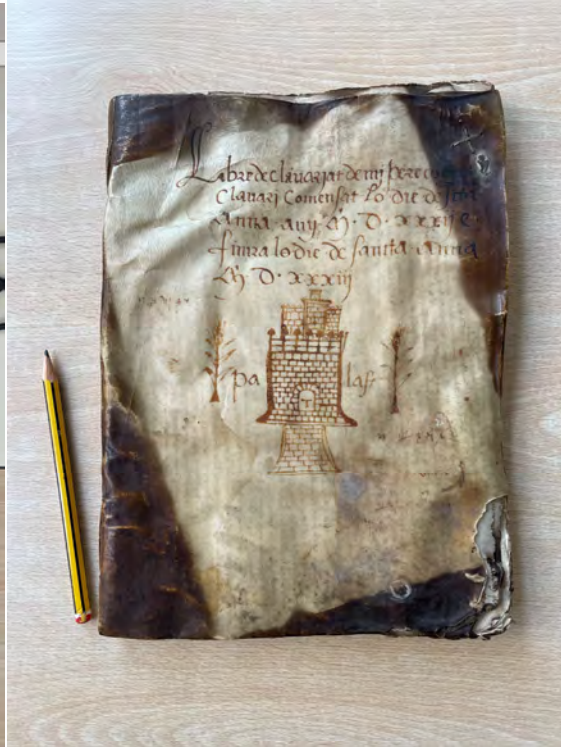 Libre de clauariat de mi pere
Clauari Comensat lo die de scta
Anna any M · D · xxxij e
finira lo die de santa Anna
M D · xxxiij
pa last